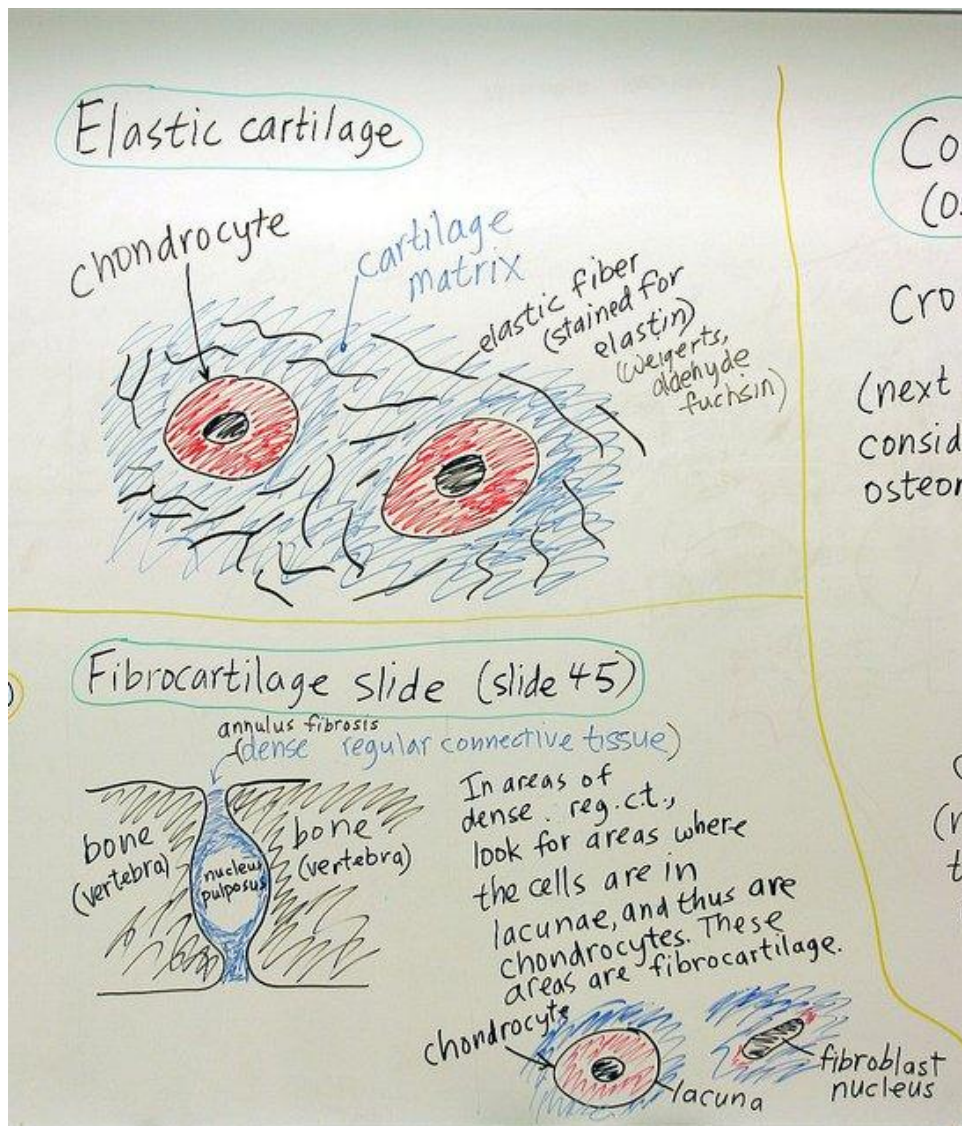 Elastic cartilage
chondrocyte
cartilage
matrix
elastic fiber
(stained for
elastin)
(Weigerts,
aldehyde
fuchsin)
Fibrocartilage slide (slide 45)
annulus fibrosis
(dense regular connective tissue)
bone
(vertebra)
nucleus
pulposus
bone
(vertebra)
In areas of
dense. reg.c.t.,
look for areas where
the cells are in
lacunae, and thus are
chondrocytes. These
areas are fibrocartilage.
chondrocyte
lacuna
fibroblast
nucleus
Co
(os
Cro
(next
consid
osteon